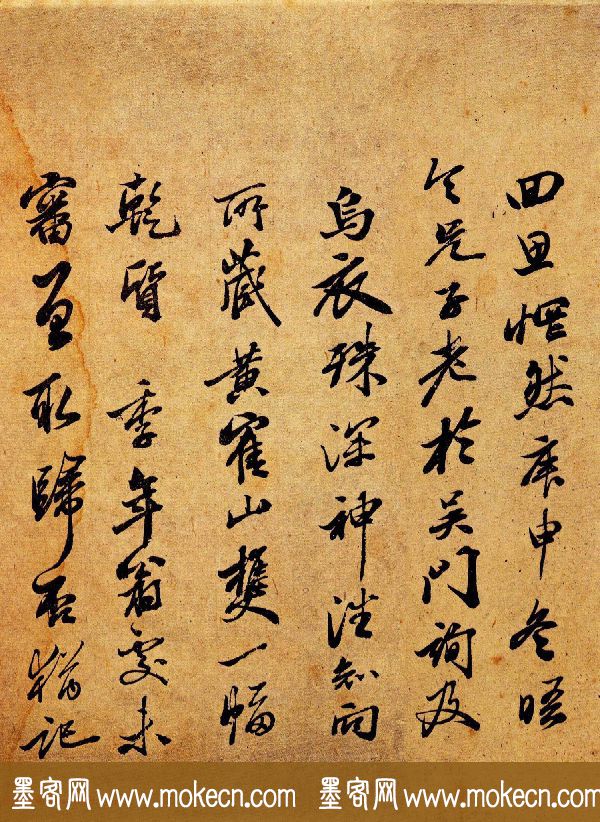 回思惘然庚申冬晤
令兄子老於吴門詢及
烏衣殊深神往知向
所藏黄隺山樵一幅
乾質 季年翁處未
審曾取歸否猶記
墨客网 www.mokecn.com 墨客网 www.mokecn.com